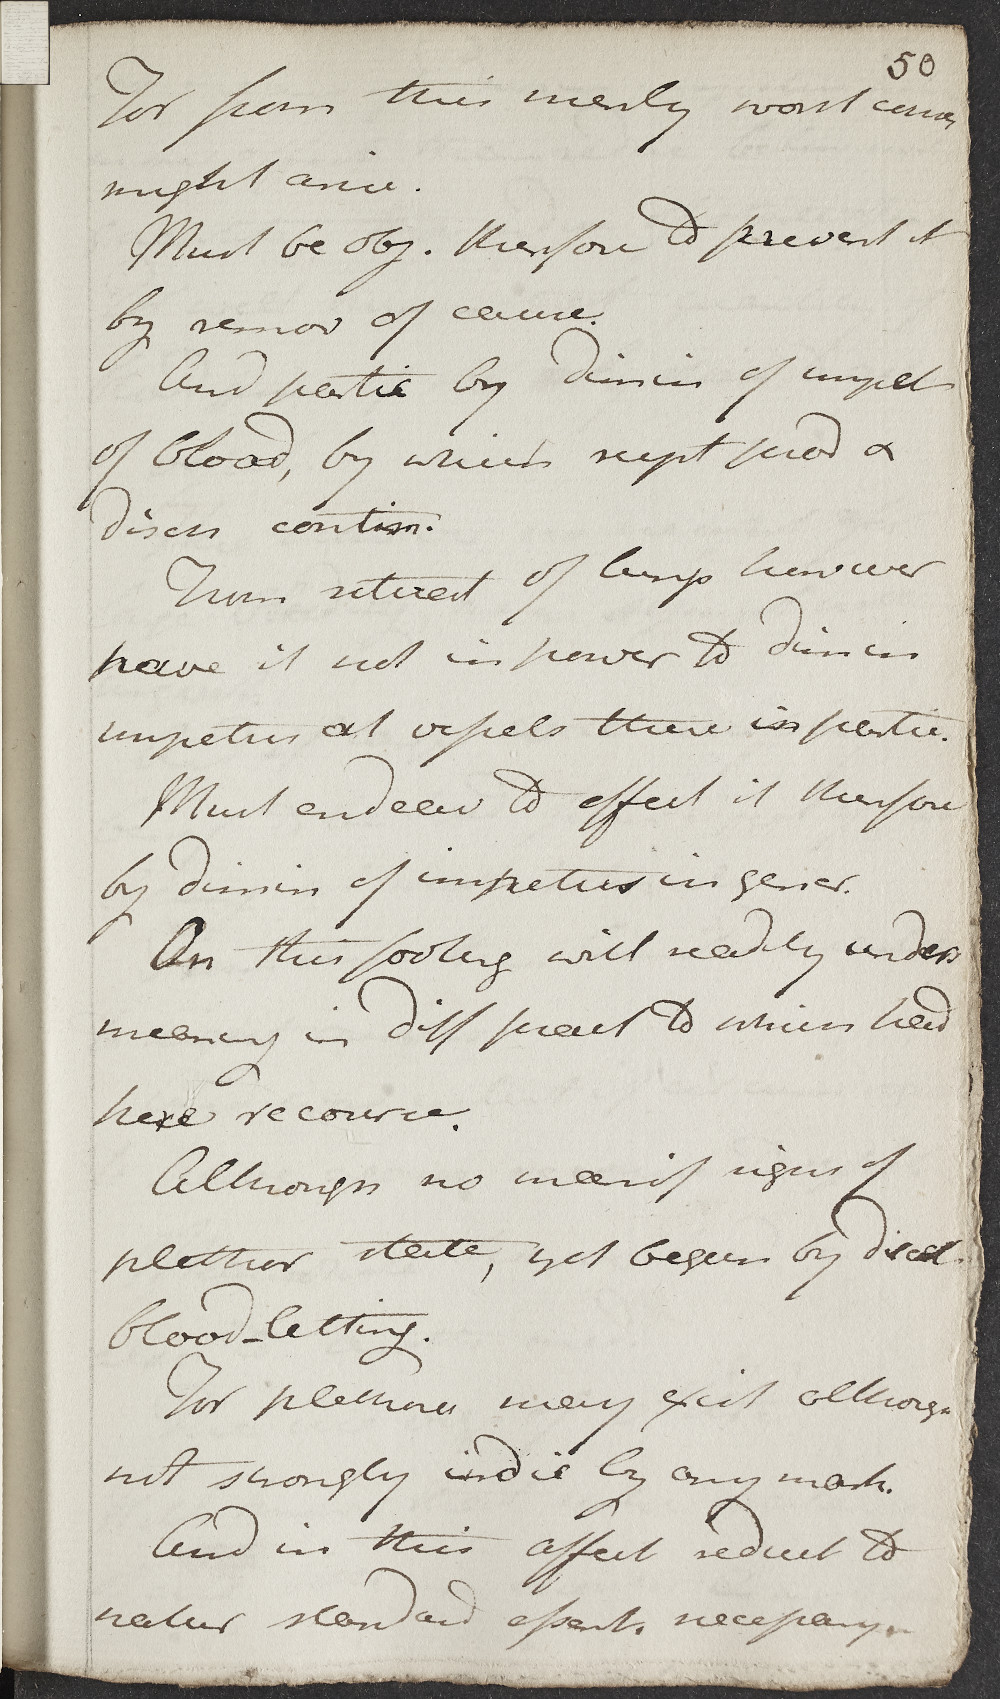 50
For from this merely worst conseq
might arise.
Must be obj. therefore to prevent it
by remov of cause.
And partic by dimin of impet
of blood, by which rupt prod &
disch contin.
From situat of lungs however
have it not in power to dimin
impetus at vessels there in partic.
Must endeav to effect it therefore
by dimin of impetus in gener.
On this footing will readily unders
meaning in diff pract to which had
here recourse.
Although no manif signs of
plethor state, yet began by direct
blood-letting.
For plethora may exist although
not strongly indic by any mark.
And in this affect reduct to
natur standard essent. necessary.